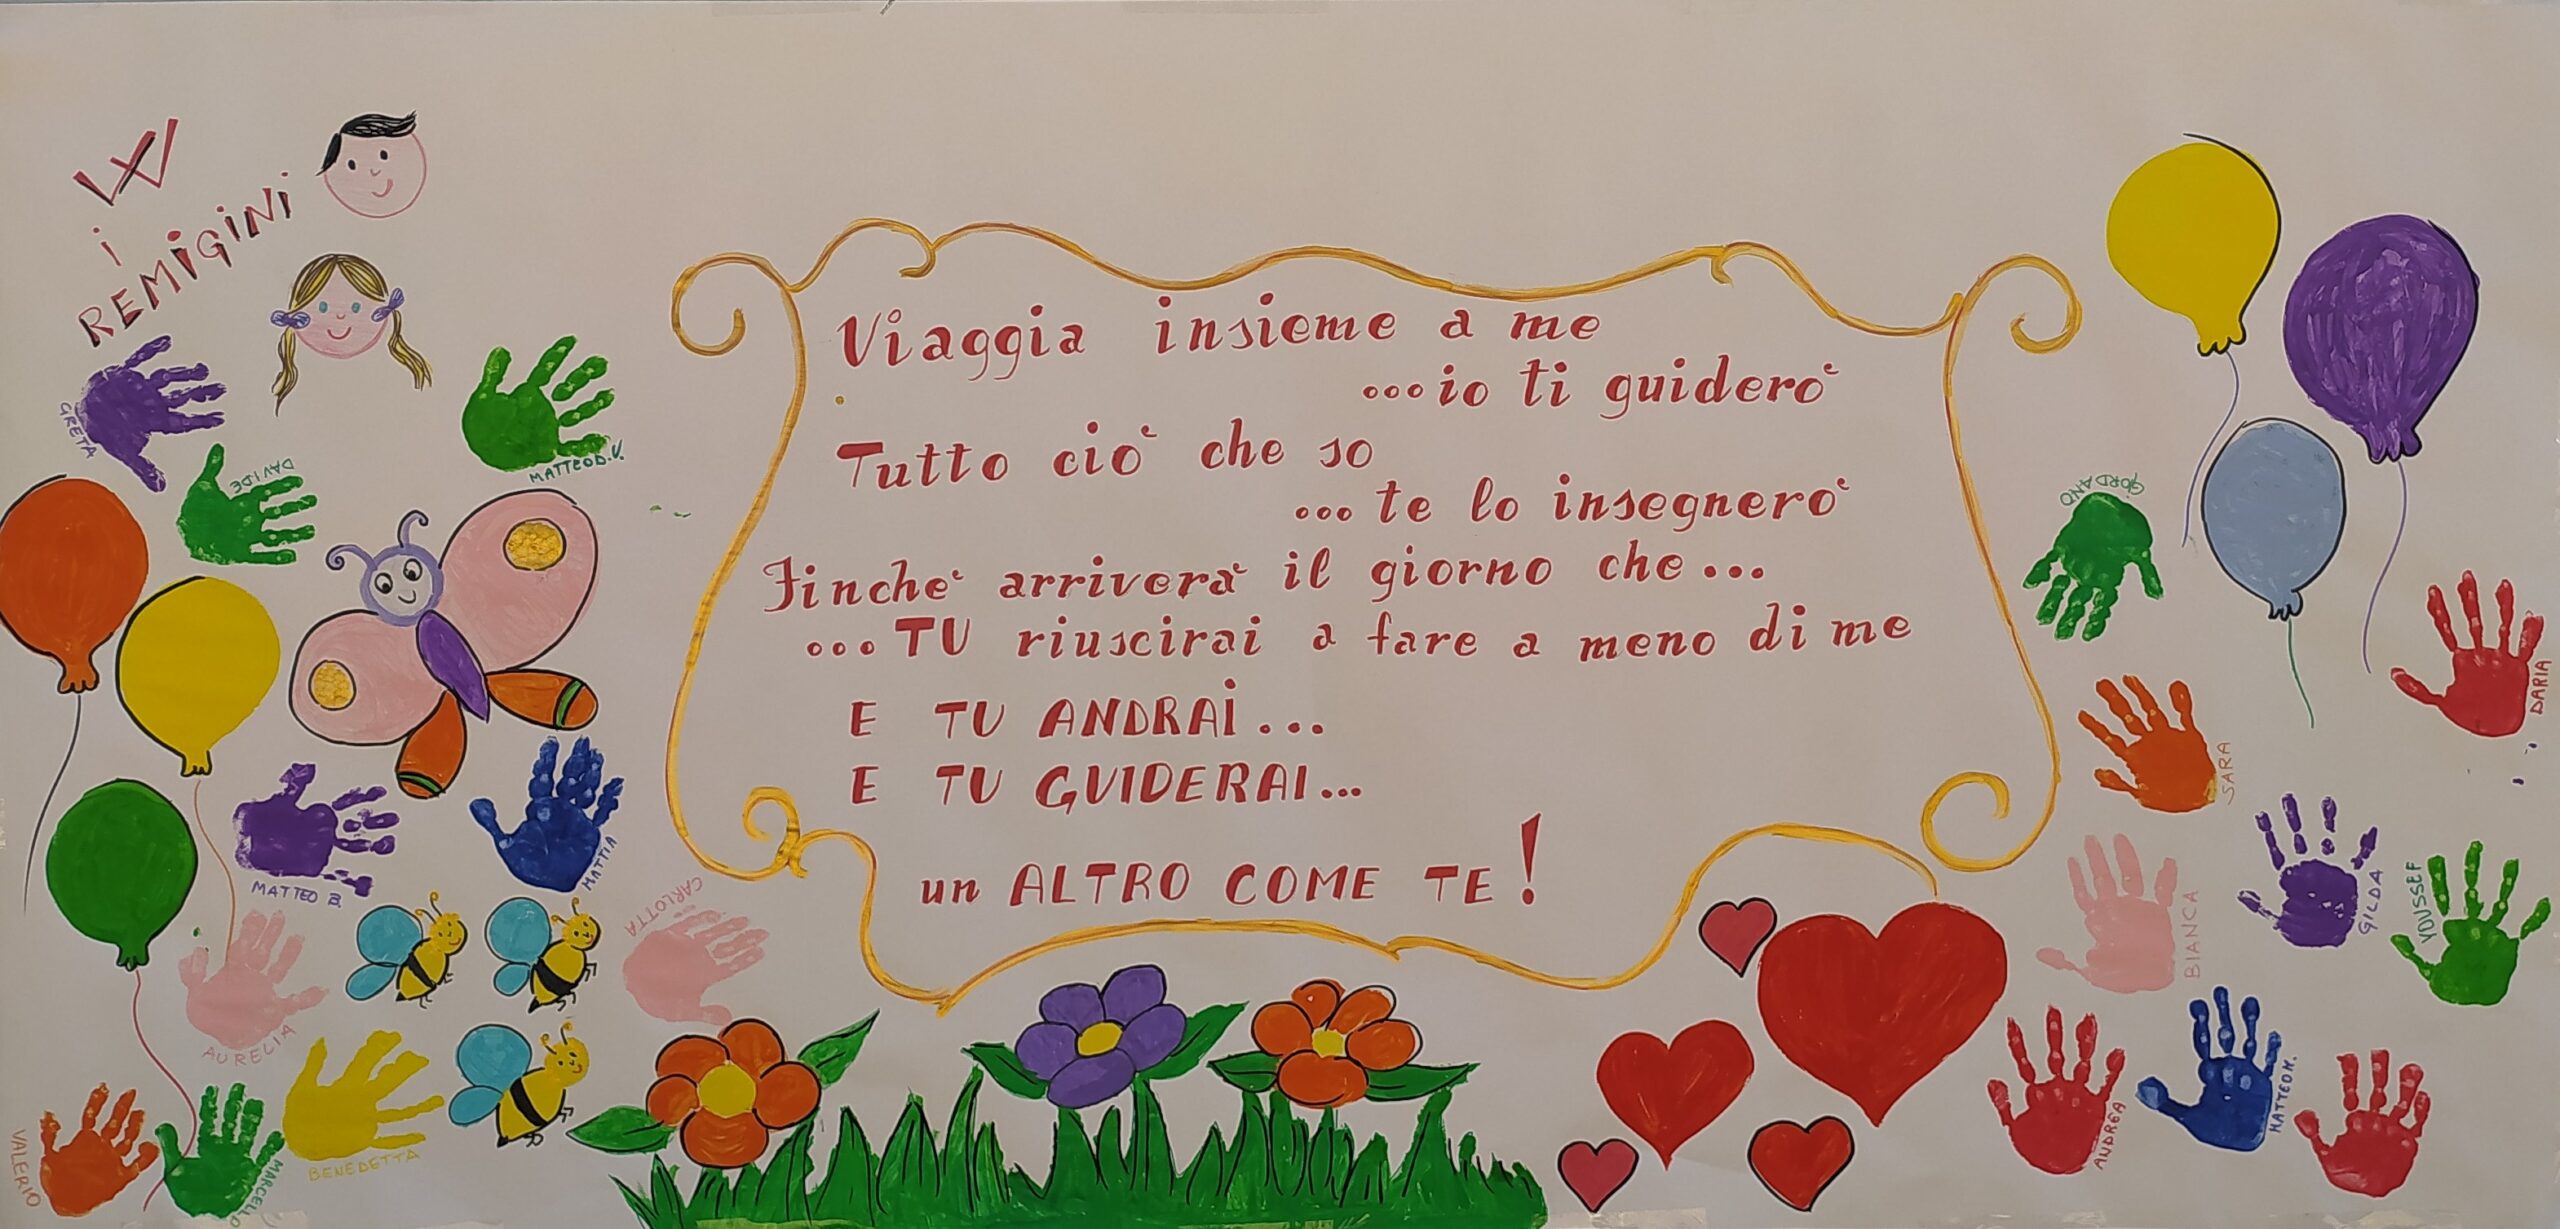 W
i
REMIGINI
GRETA
DAVIDE
MATTEO D.V.
Viaggia insieme a me
...io ti guiderò
Tutto ciò che so
...te lo insegnerò
Finchè arriverà il giorno che...
...TU riuscirai a fare a meno di me
E TU ANDRAI...
E TU GUIDERAI...
un ALTRO COME TE!
MATTEO B.
MATTIA
CARLOTTA
AURELIA
BENEDETTA
VALERIO
MARCELLO
GIORDANO
DARIA
SARA
BIANCA
GILDA
YOUSSEF
ANDREA
MATTEO M.